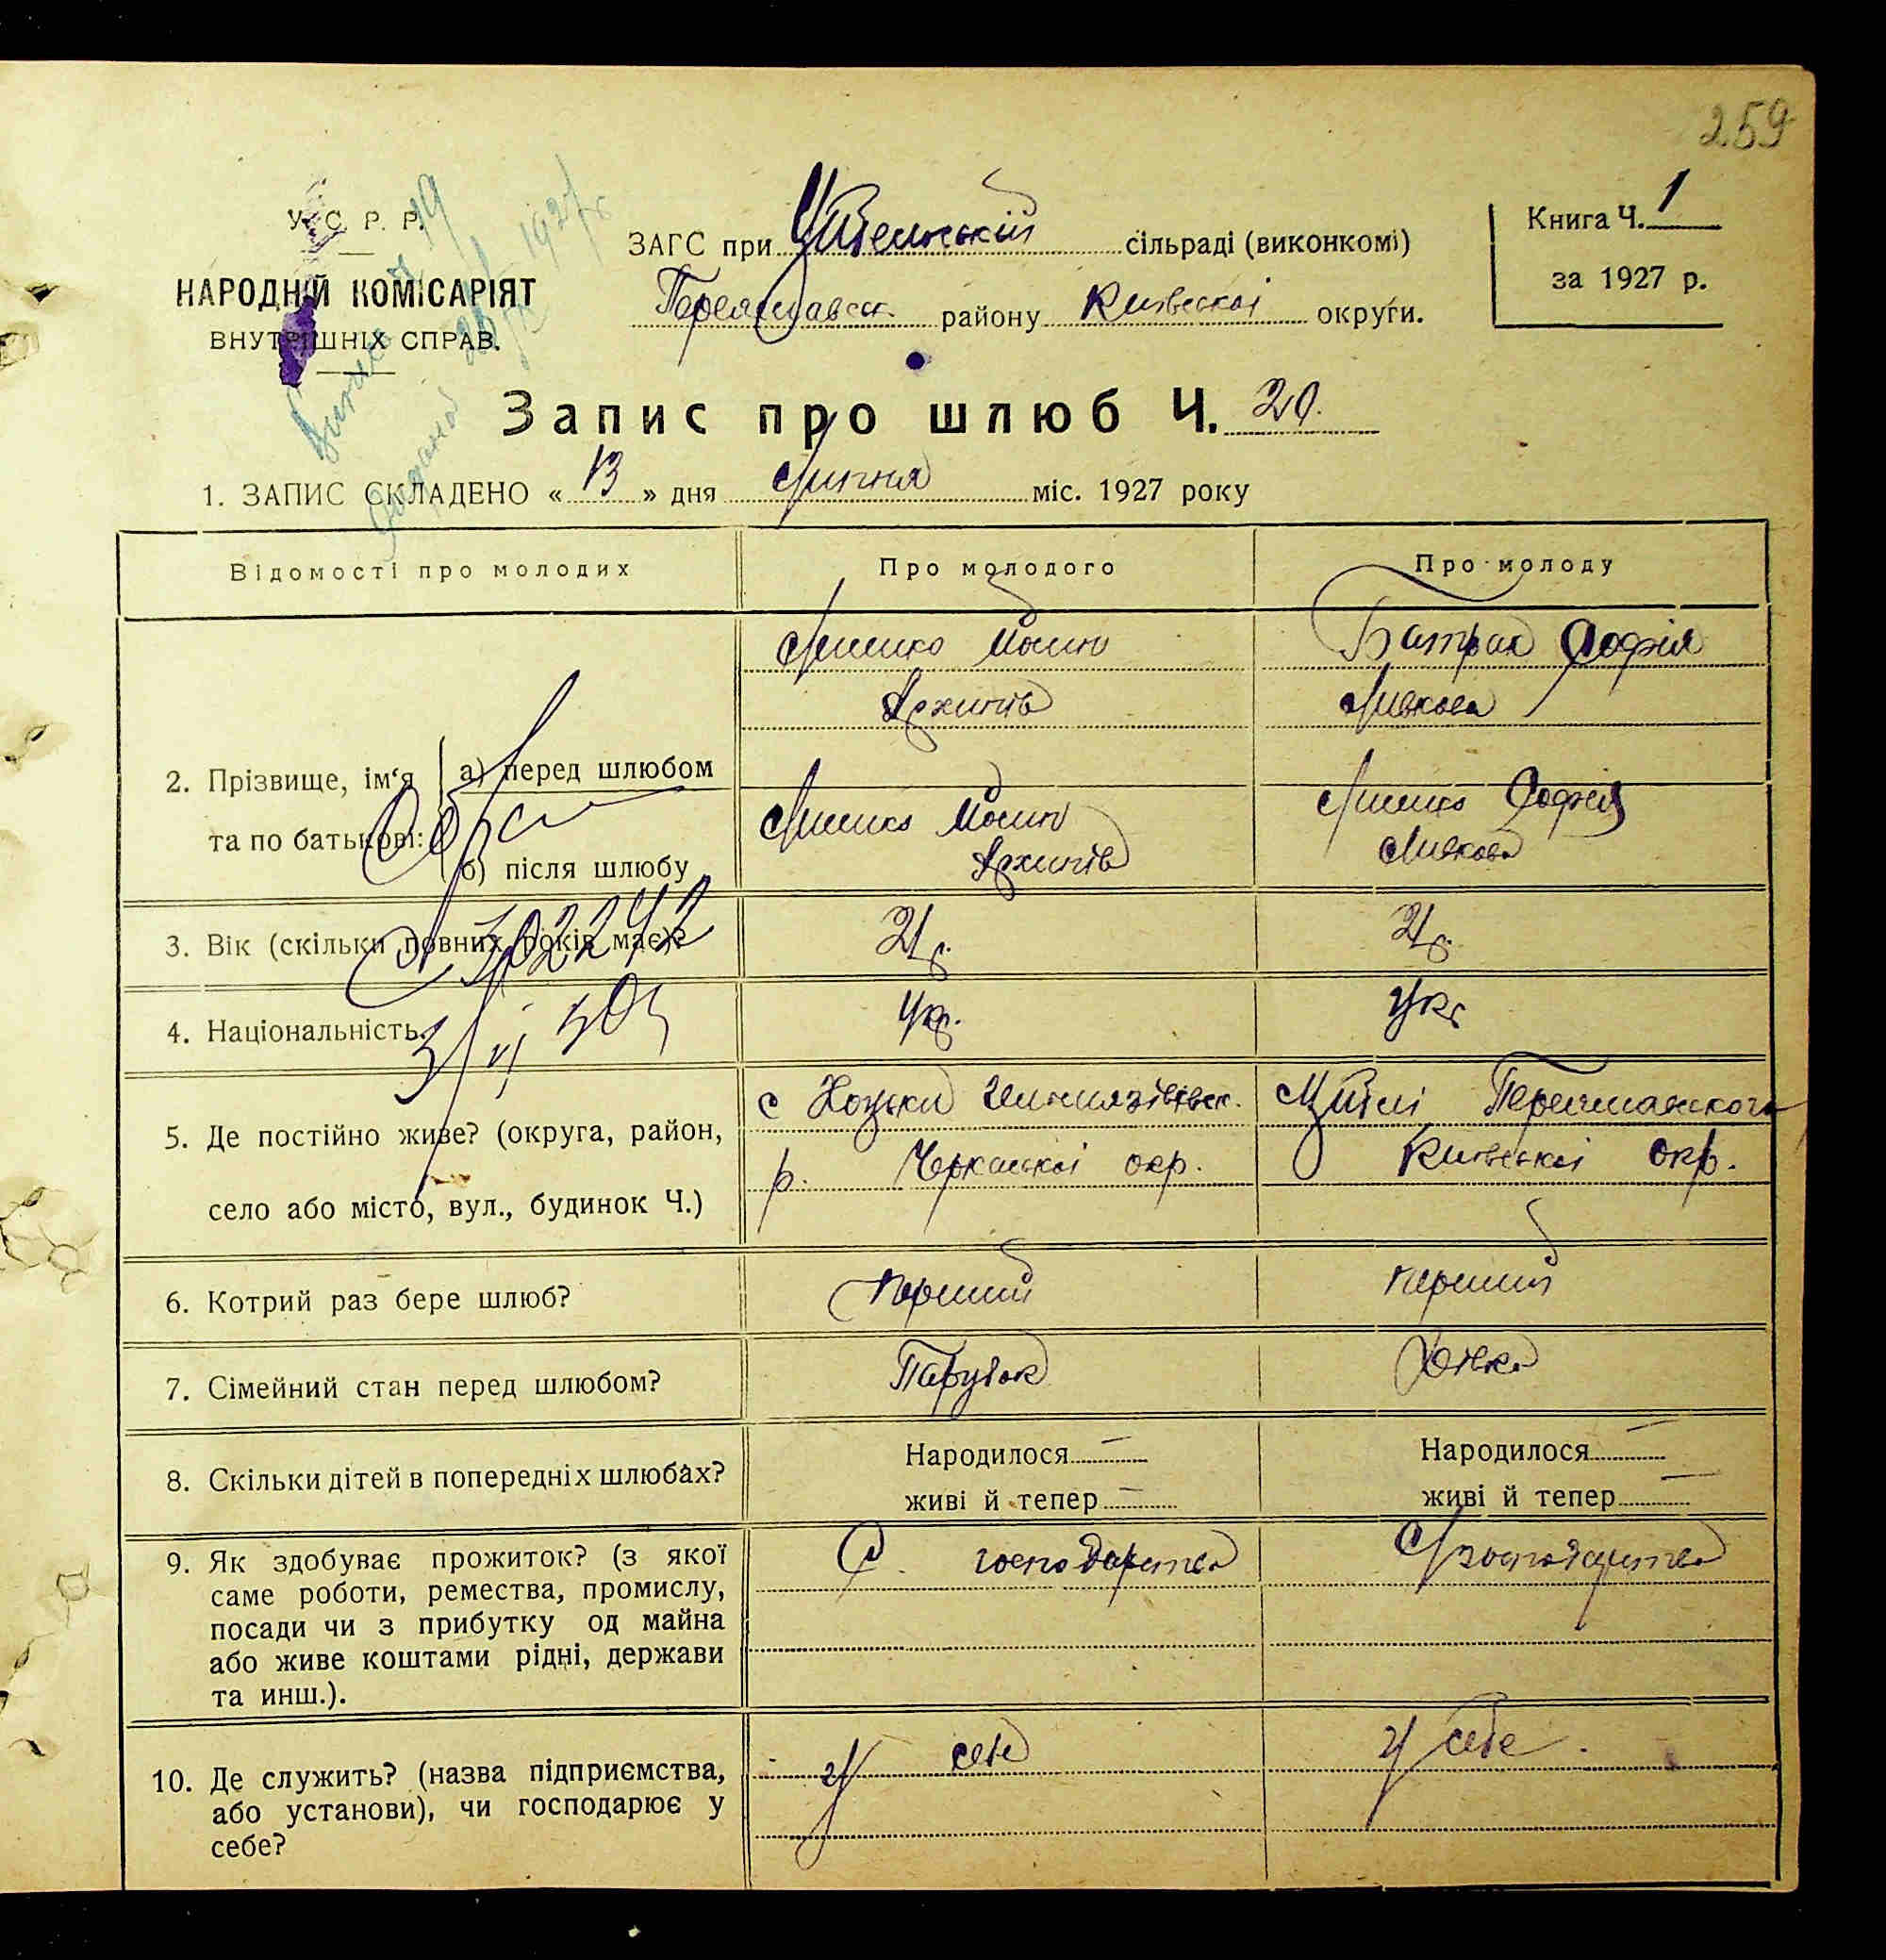 259
У. С. Р. Р.
НАРОДНІЙ КОМІСАРІЯТ
ВНУТРІШНІХ СПРАВ.
ЗАГС при сільраді (виконкомі)
Переяславськ. району Київської округи.
Книга Ч. 1
за 1927 р.
Запис про шлюб Ч. 20.
1. ЗАПИС СКЛАДЕНО «13» дня Липня міс. 1927 року
Відомості про молодих
Про молодого
Про молоду
2. Прізвище, ім‘я та по батькові:
а) перед шлюбом
Архипів
Батрак Софія
б) після шлюбу
Архипів
Софія
3. Вік (скільки повних років має)?
21 р.
21 р.
4. Національність.
Укр.
Укр.
5. Де постійно живе? (округа, район,
село або місто, вул., будинок Ч.)
с Хоцьки
р. Черкаської окр.
Київської окр.
6. Котрий раз бере шлюб?
перший
перший
7. Сімейний стан перед шлюбом?
Парубок
Дівка
8. Скільки дітей в попередніх шлюбах?
Народилося —
живі й тепер —
Народилося —
живі й тепер —
9. Як здобуває прожиток? (з якої
саме роботи, ремества, промислу,
посади чи з прибутку од майна
або живе коштами рідні, держави
та инш.).
С. господарство
С/господарство
10. Де служить? (назва підприємства,
або установи), чи господарює у
себе?
у себе
у себе.